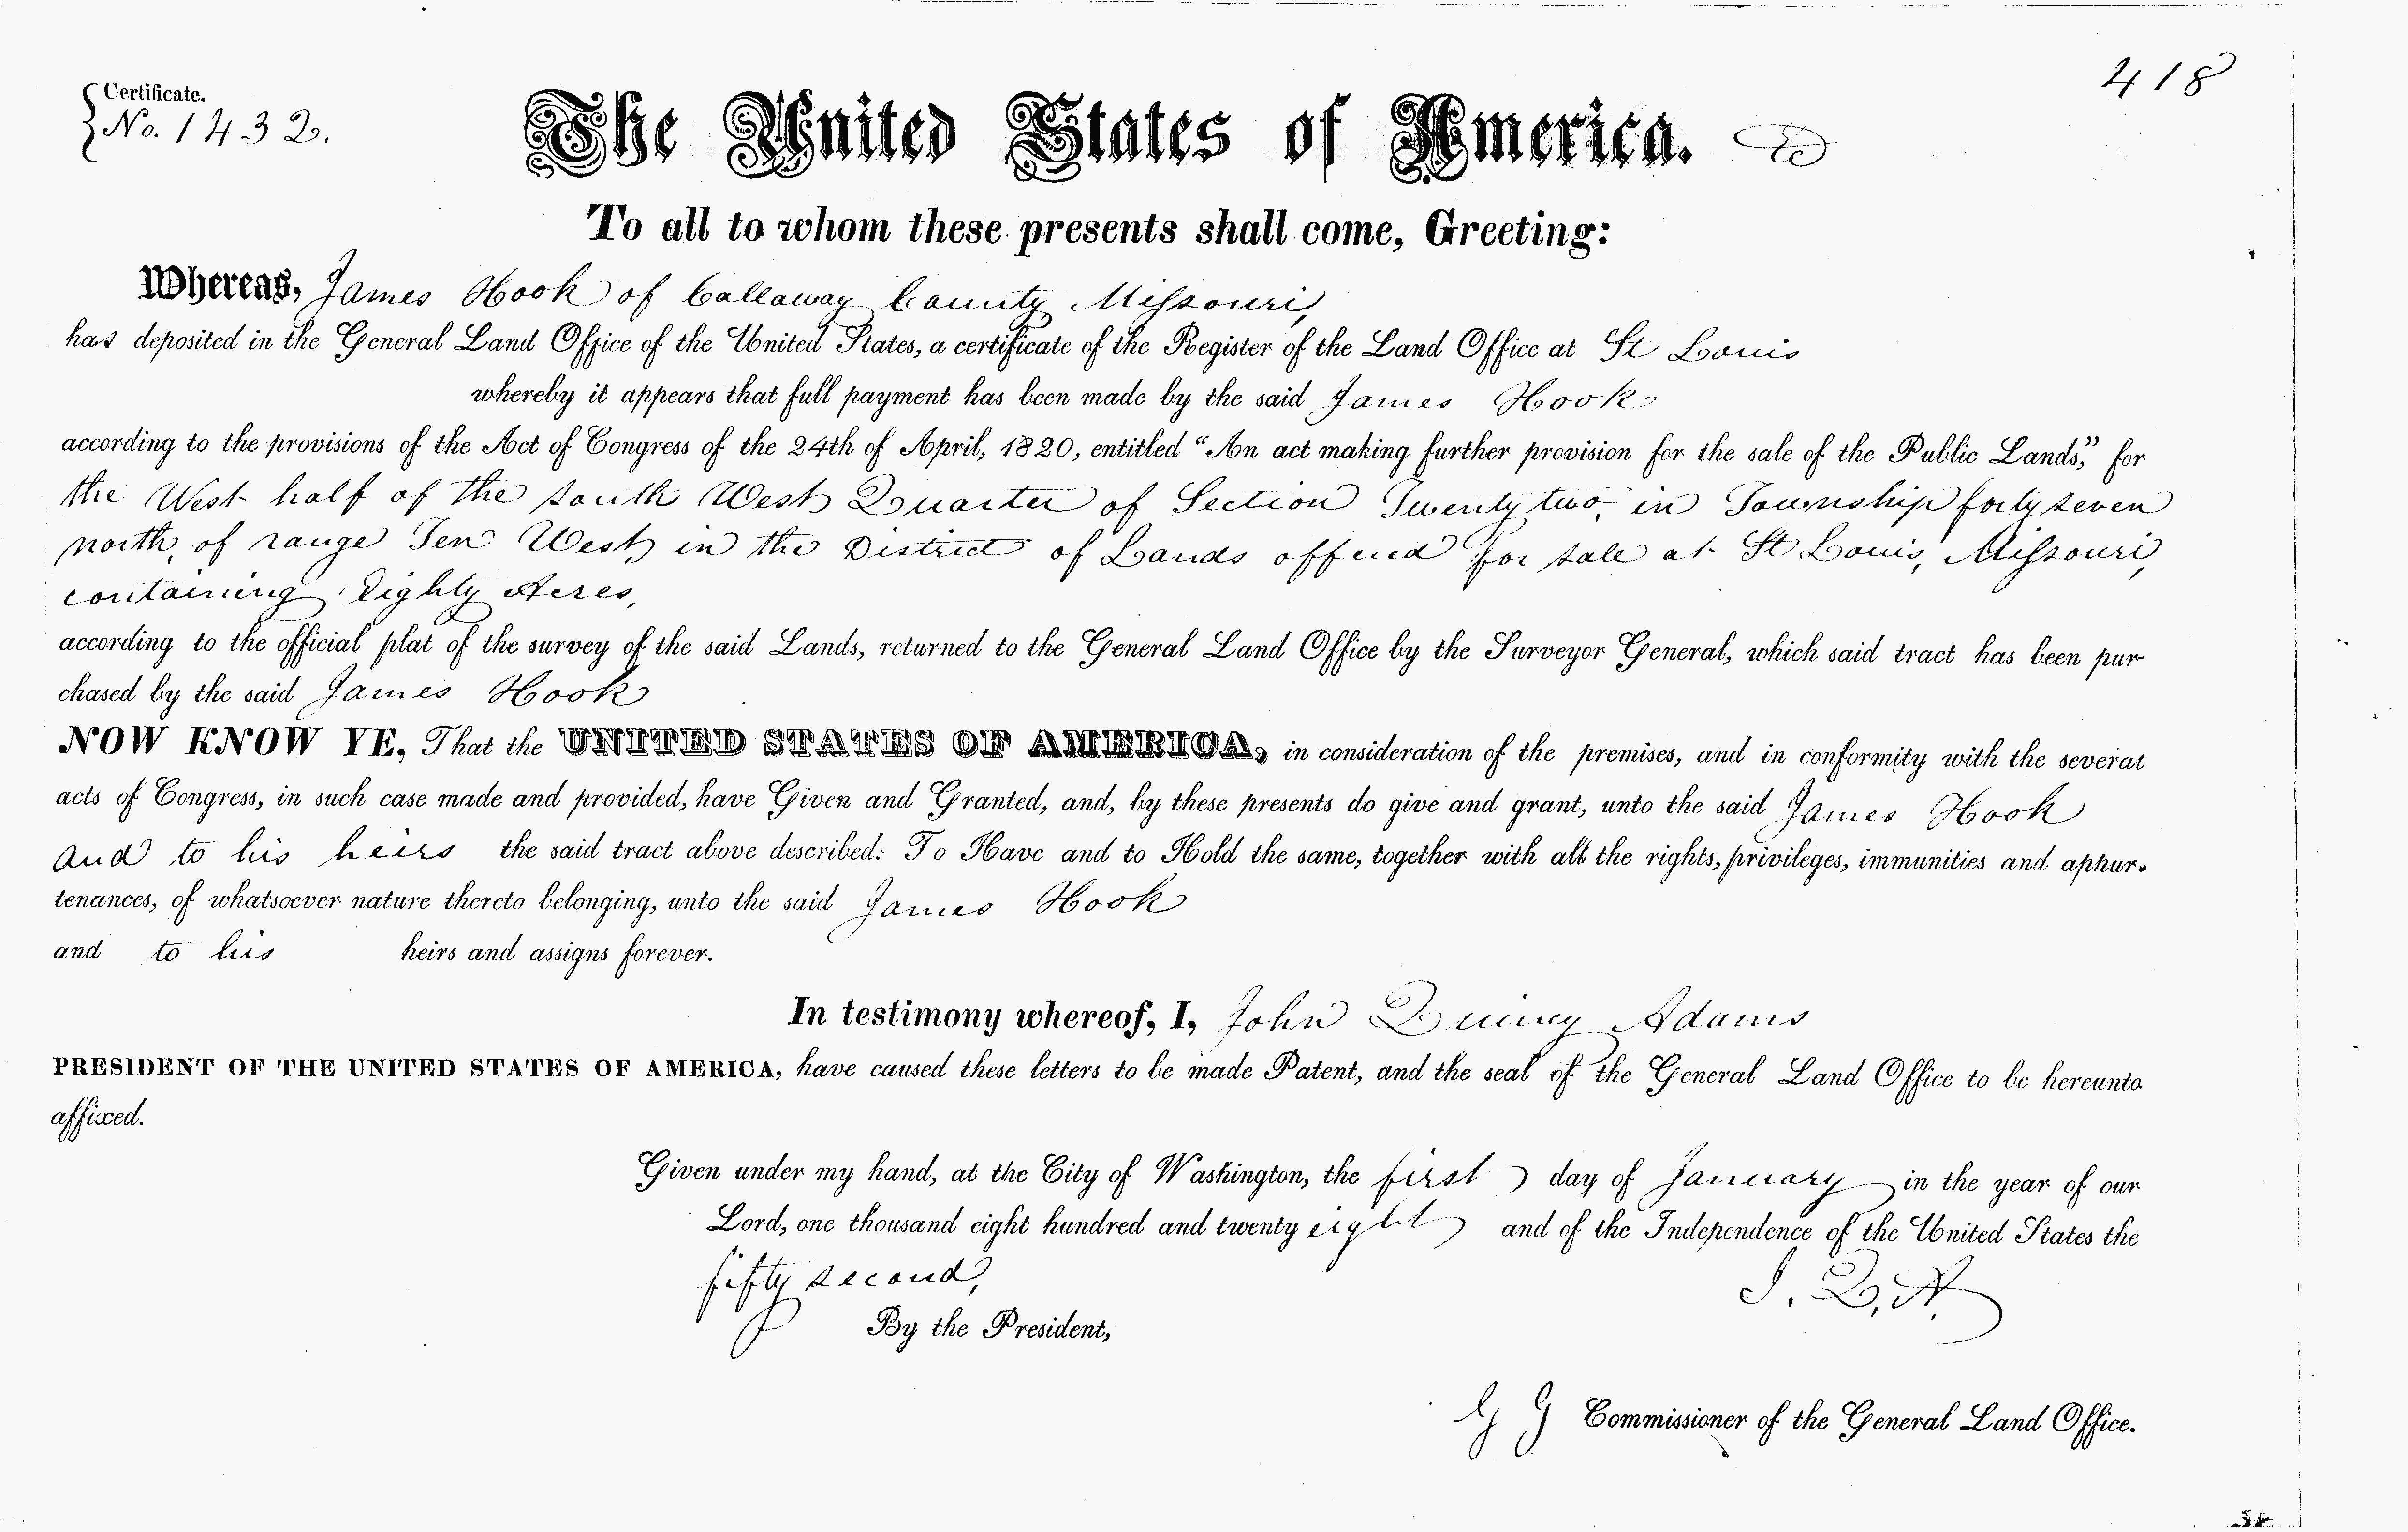 418
Certificate.
No. 1432.
The United States of America.
To all to whom these presents shall come, Greeting:
Whereas, James Hook of Callaway County Missouri,
has deposited in the General Land Office of the United States, a certificate of the Register of the Land Office at St Louis
whereby it appears that full payment has been made by the said James Hook
according to the provisions of the Act of Congress of the 24th of April, 1820, entitled “An act making further provision for the sale of the Public Lands,” for
the West half of the South West Quarter of Section Twenty two, in Township forty seven
north, of range Ten West, in the District of Lands offered for sale at St Louis, Missouri,
containing Eighty Acres,
according to the official plat of the survey of the said Lands, returned to the General Land Office by the Surveyor General, which said tract has been pur-
chased by the said James Hook
NOW KNOW YE, That the UNITED STATES OF AMERICA, in consideration of the premises, and in conformity with the several
acts of Congress, in such case made and provided, have Given and Granted, and, by these presents do give and grant, unto the said James Hook
and to his heirs the said tract above described: To Have and to Hold the same, together with all the rights, privileges, immunities and appur-
tenances, of whatsoever nature thereto belonging, unto the said James Hook
and to his heirs and assigns forever.
In testimony whereof, I, John Quincy Adams
PRESIDENT OF THE UNITED STATES OF AMERICA, have caused these letters to be made Patent, and the seal of the General Land Office to be hereunto
affixed.
Given under my hand, at the City of Washington, the first day of January in the year of our
Lord, one thousand eight hundred and twenty eight and of the Independence of the United States the
fifty second,
J. Q. A.
By the President,
G G Commissioner of the General Land Office.